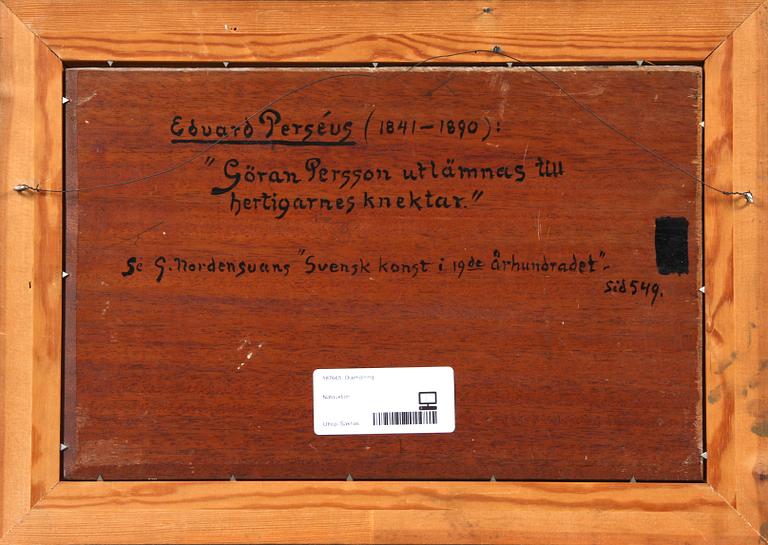 Edvard Perséus (1841-1890):
"Göran Persson utlämnas till
hertigarnes knektar."
Se G. Nordensvans "Svensk konst i 19de århundradet"-
sid 549.
Oljemålning
Nätauktion
Utrop: Saknas